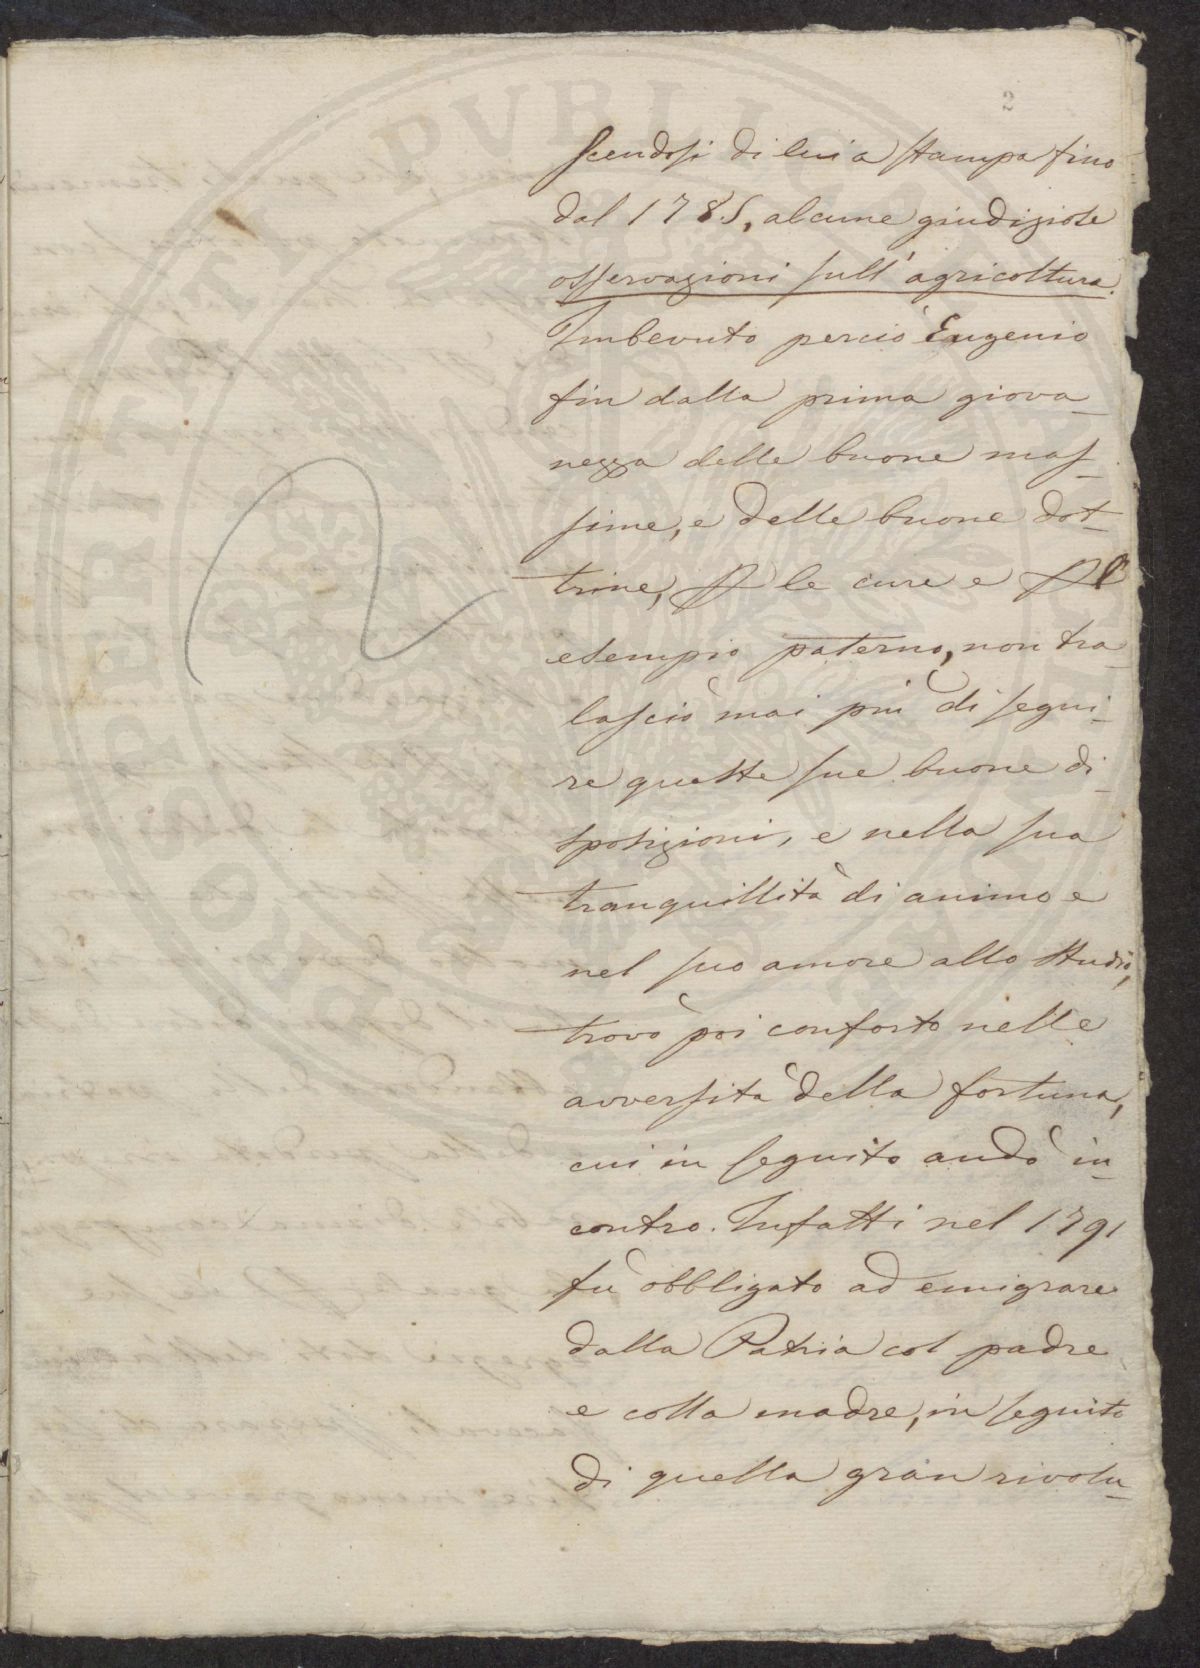 2
scendosi di lui a stampa fino
dal 1785, alcune giudiziose
osservazioni sull'agricoltura.
Imbevuto perciò Eugenio
fin dalla prima giova-
nezza delle buone mas-
sime, e delle buone dot-
trine, le cure e l'
esempio paterno, non tra-
lasciò mai più di segui-
re queste sue buone di-
sposizioni, e nella sua
tranquillità di animo e
nel suo amore allo studio,
trovò poi conforto nelle
avversità della fortuna,
cui in seguito andò in-
contro. Infatti nel 1791
fù obbligato ad emigrare
dalla Patria col padre
e colla madre, in seguito
di quella gran rivolu-